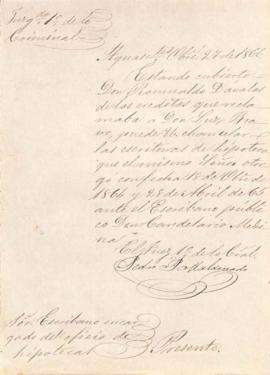 Juzgdo 1º de lo
Criminal
Aguastes Obre 27 de 1866
Estando cubierto
Don Romualdo Davalos
de los creditos que recla
maba a Don Luz Bra
vo, puede U. chancelar
las escrituras de hipoteca
que el mismo Señor otor
gó con fecha 18 de
1864 y 28 de Abril de 65
ante el Escribano público
Don Candelario Medi
na
El Juez 1º de lo Cral.
Pedro P. Maldonado
Sor. Escribano encar
gado del oficio de
hipotecas
Presente.